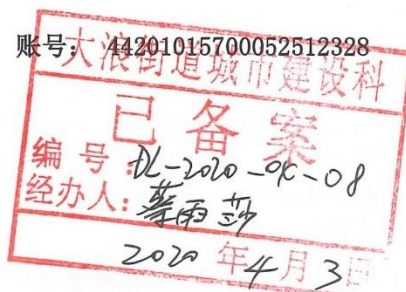 账号： 44201015700052512328
大浪街道城市建设科
已备案
编号：DL-2020-QK-08
经办人：蔡雨莎
2020年4月3日